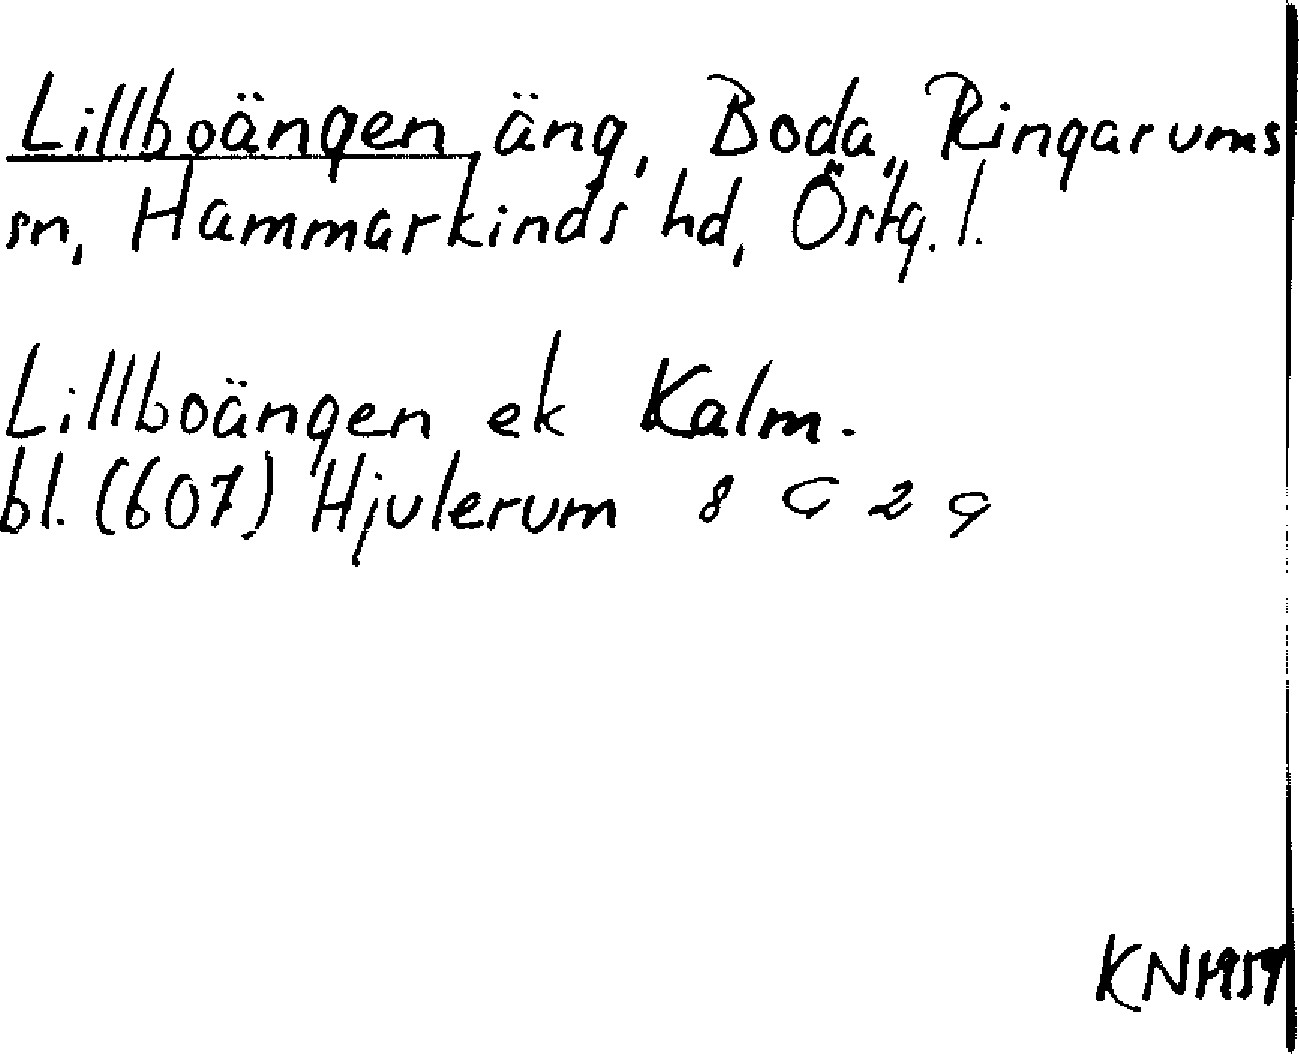 Lillboängen, äng, Boda, Ringarums
sn, Hammarkinds hd, Östg. l.
Lillboängen ek Kalm.
bl. (607) Hjulerum 8 G 2 g
KNH